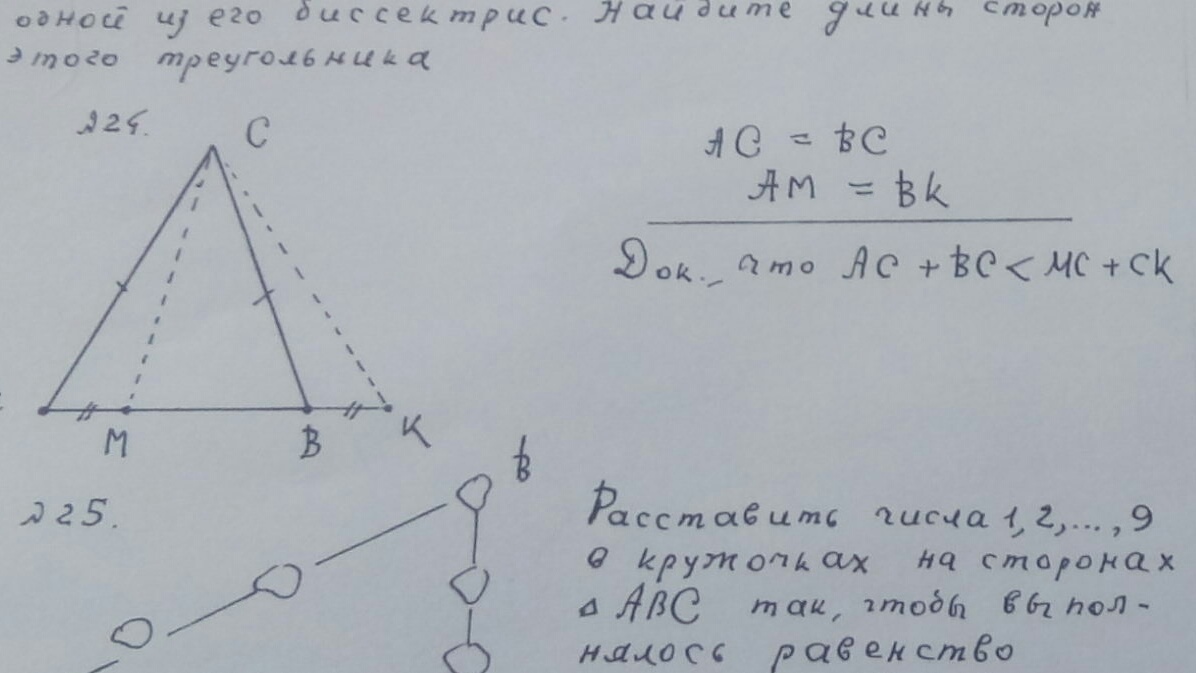 одной из его биссектрис. Найдите длины сторон
этого треугольника
224.
C
AC = BC
AM = BK
Док., что AC + BC < MC + CK
M
B
K
225.
B
Расставить числа 1, 2, ..., 9
в кружочках на сторонах
△ ABC так, чтобы выпол-
нялось равенство